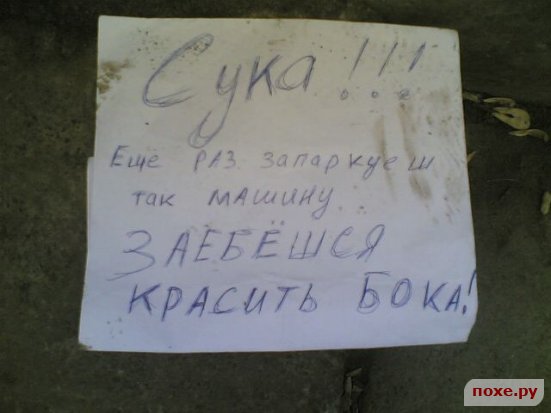 Сука!!!
Еще раз запаркуеш
так машину..
ЗАЕБЁШСЯ
КРАСИТЬ БОКА!
похе.ру